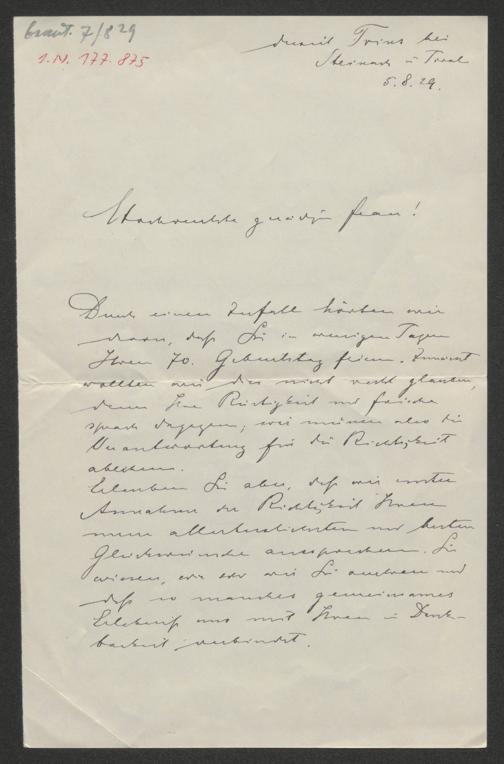 beant. 7/8 29
I.N. 177.875
derzeit Trins bei
Steinach i Tirol
5.8.29.
Hochverehrte gnädige Frau!
Durch einen Zufall hörten wir
davon, daß Sie in wenigen Tagen
Ihren 70. Geburtstag feiern. Zunächst
wollten wir dies nicht recht glauben,
denn Ihre Rüstigkeit und Frische
sprach dagegen; wir müssen also die
Verantwortung für die Richtigkeit
ablehnen.
Erlauben Sie aber, daß wir unter
Annahme der Richtigkeit Ihnen
unsere allerherzlichsten und besten
Glückwünsche aussprechen. Sie
wissen, wie sehr wir Sie verehren und
daß so manches gemeinsames
Erlebnis uns mit Ihnen in Dank-
barkeit verbindet.